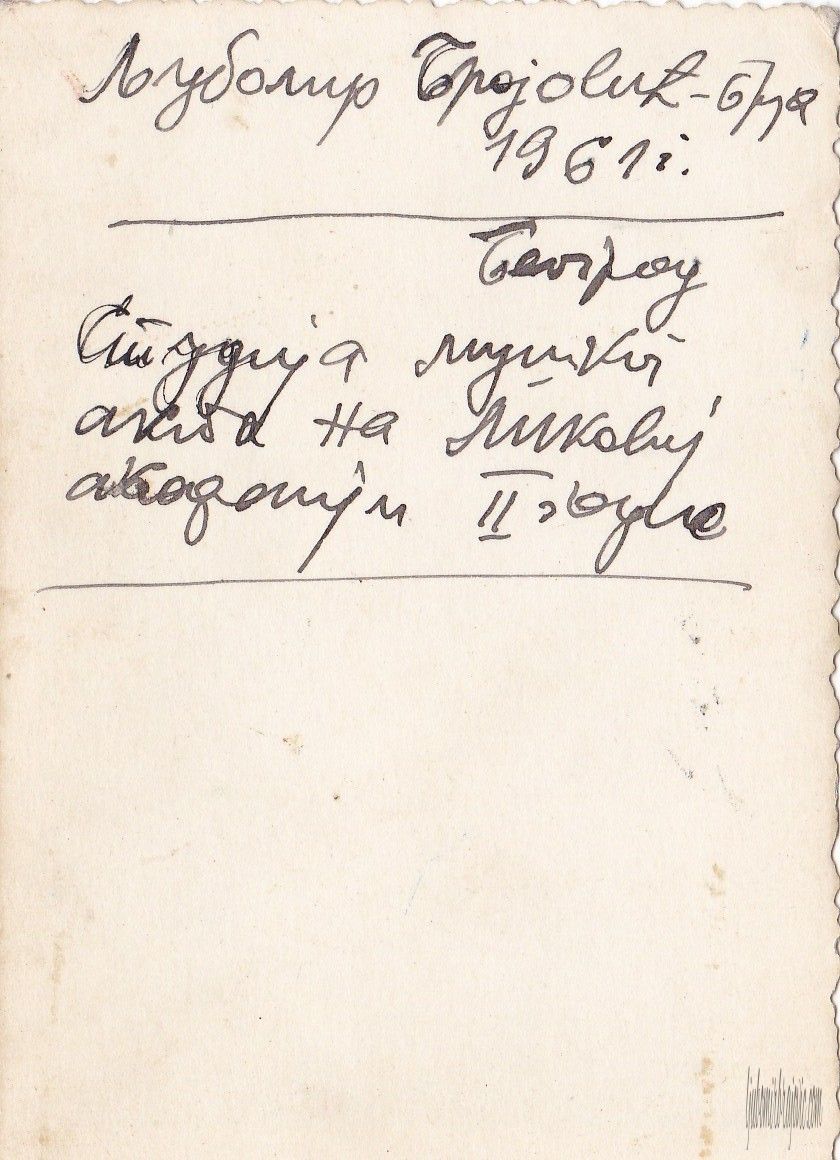 Љубомир Брајовић - Бґуа
1961 г.
Београд
Студија мушког
акта на Ликовној
академији II године
ljubomirbrajovic.com